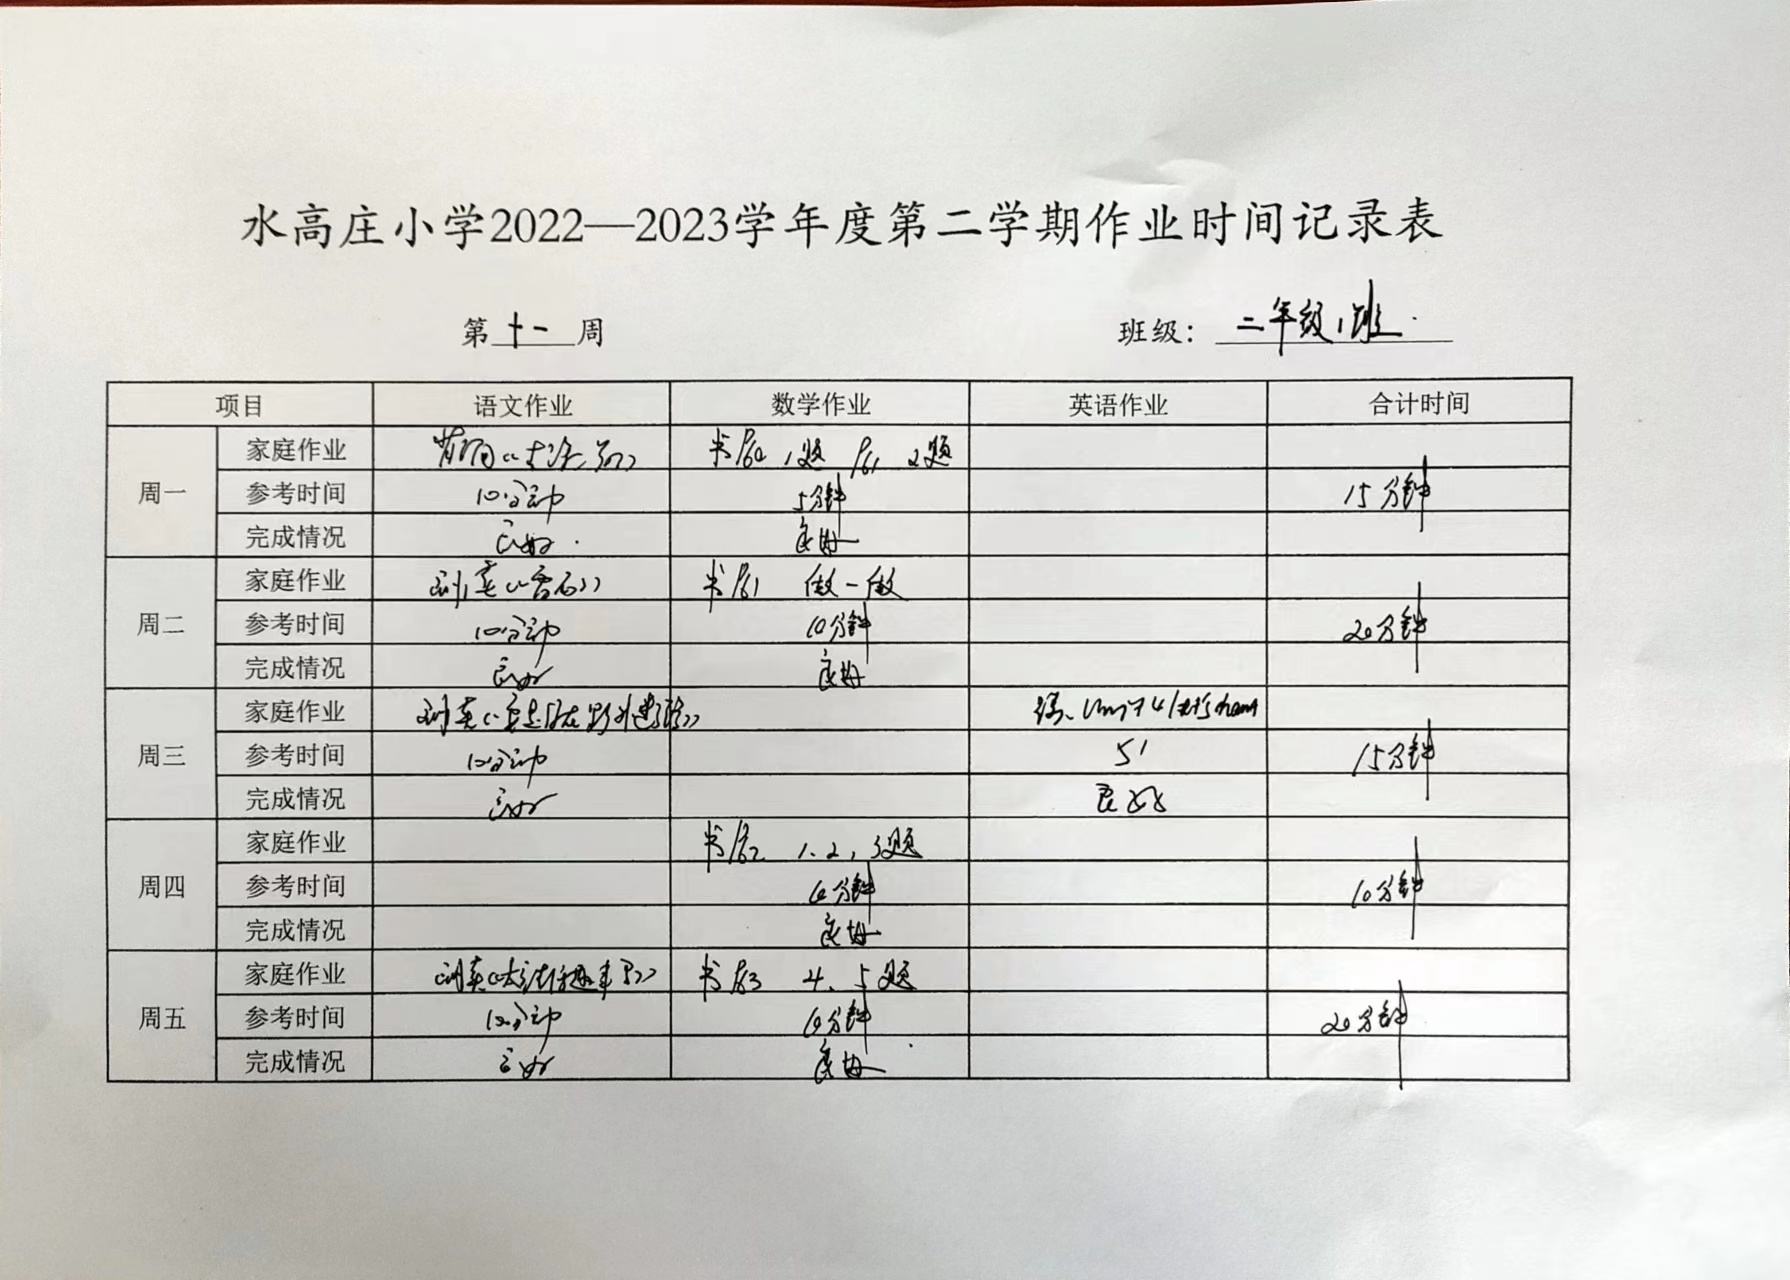 水高庄小学2022—2023学年度第二学期作业时间记录表
第十一周 班级：二年级1班
项目 语文作业 数学作业 英语作业 合计时间
周一 家庭作业 背诵 书P60 1题 P61 2题
参考时间 10分钟 5分钟 15分钟
完成情况 良好 良好
周二 家庭作业 书P61 做一做
参考时间 10分钟 10分钟 20分钟
完成情况 良好 良好
周三 家庭作业 《要是你在野外迷了路》 Unit 4
参考时间 10分钟 5' 15分钟
完成情况 良好 良好
周四 家庭作业 书P62 1、2、3题
参考时间 10分钟 10分钟
完成情况 良好
周五 家庭作业 书P63 4、5题
参考时间 10分钟 10分钟 20分钟
完成情况 良好 良好